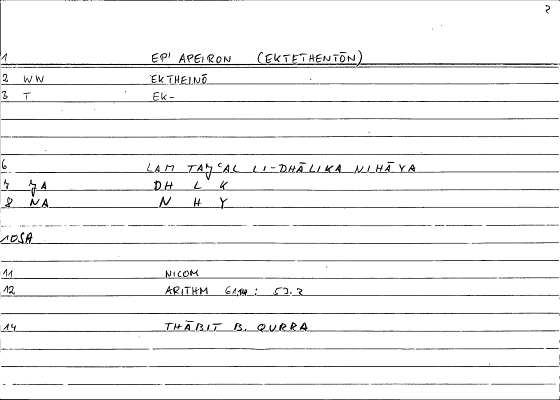 2
1 EPI' APEIRON (EKTETHENTŌN)
2 WW EKTHEINŌ
3 T EK-
6 LAM TAJ'AL LI-DHĀLIKA NIHĀYA
7 JA DH L K
8 NA N H Y
10SA
11 NICOM
12 ARITHM : 53.2
14 THĀBIT B. QURRA